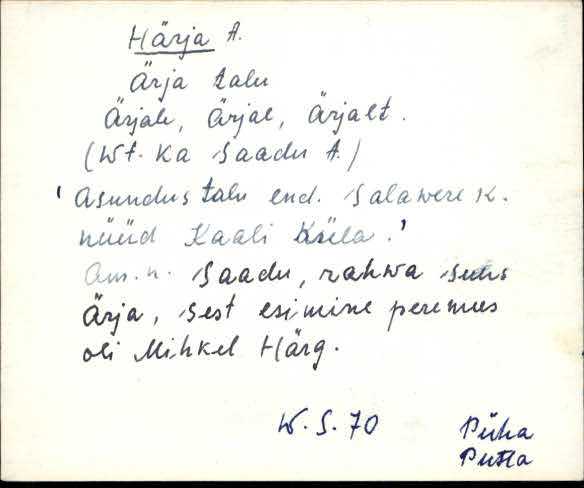 Härja A.
Ärja talu
Ärjale, Ärjal, Ärjalt.
(Wt. ka Saadu A.)
'Asundus talu end. Salawere k.
nüüd Kaali küla.'
Am. n. Saadu, rahwa suus
Ärja, sest esimine peremees
oli Mihkel Härg.
W. S. 70
Püha
Putla